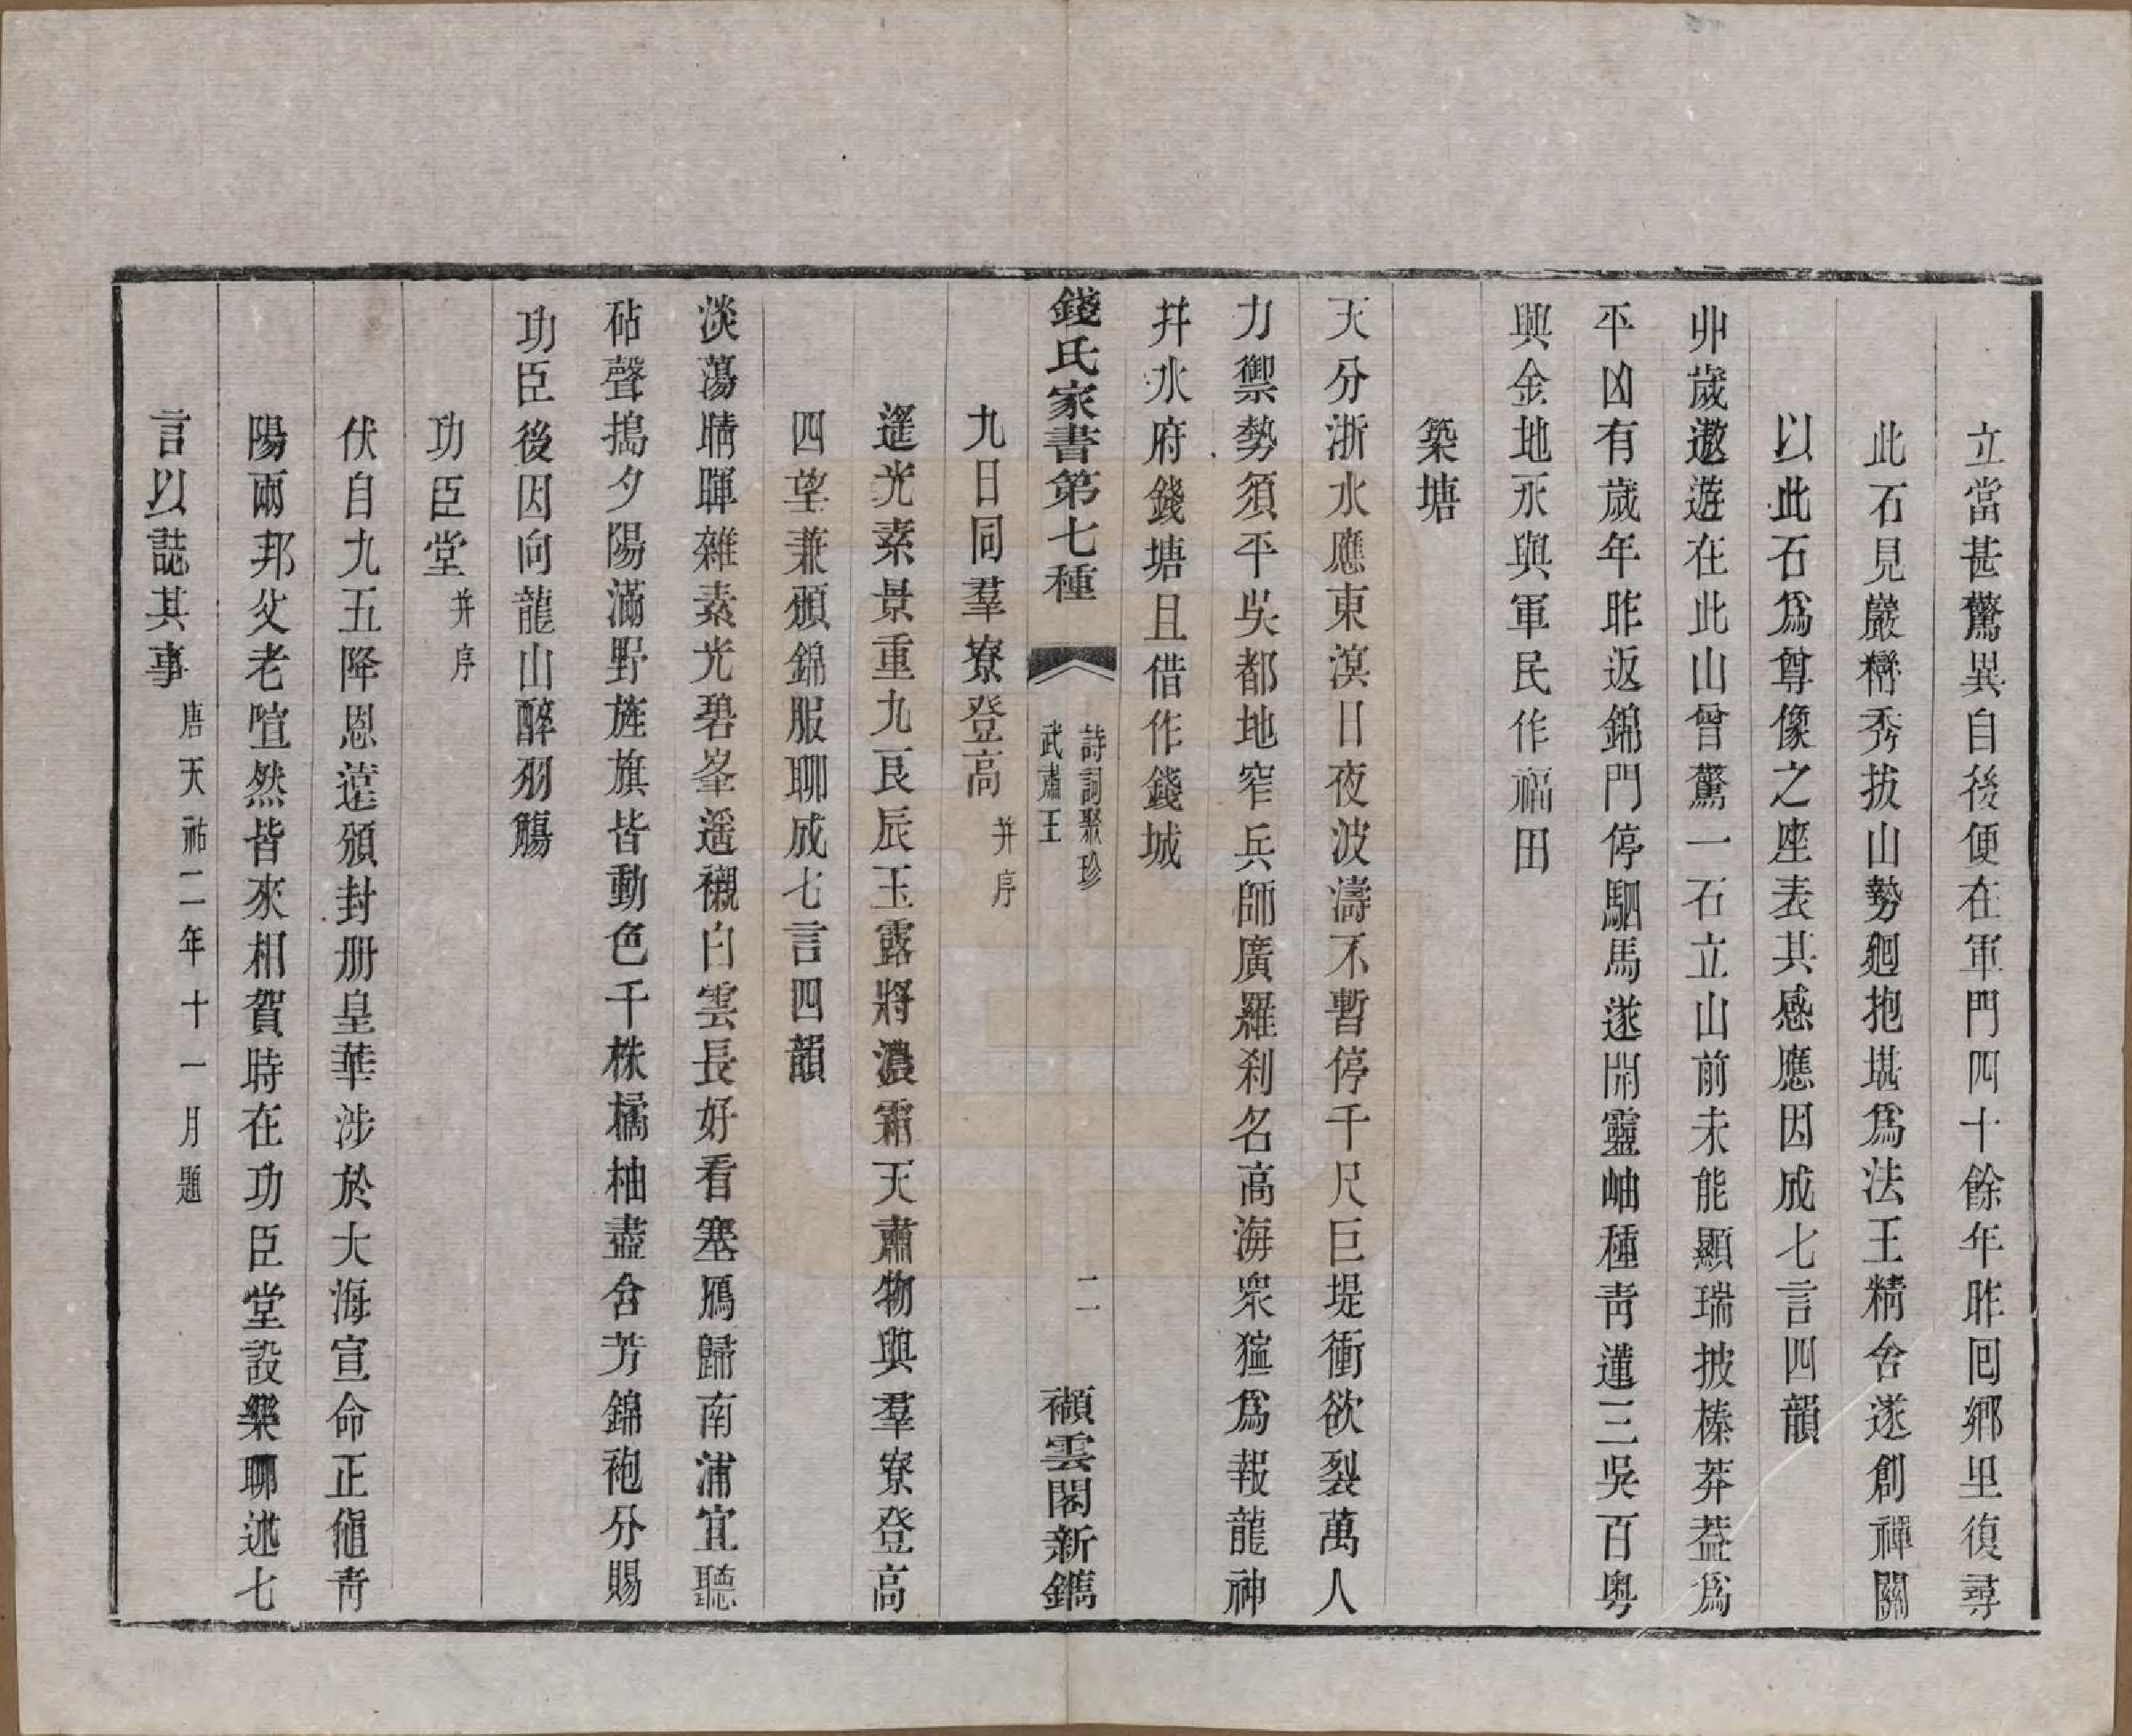 立當甚驚異自後便在軍門四十餘年昨囘鄉里復尋
此石見巖巒秀拔山勢廻抱堪爲法王精舍遂創禪關
以此石爲尊像之座表其感應因成七言四韻
丱歲遨遊在此山曾驚一石立山前未能顯瑞披榛莽蓋爲
平凶有歲年昨返錦門停駟馬遂開靈岫種靑蓮三吳百粵
興金地永與軍民作福田
築塘
天分浙水應東溟日夜波濤不暫停千尺巨堤衝欲裂萬人
力禦勢須平吳都地窄兵師廣羅刹名高海衆獰爲報龍神
幷水府錢塘且借作錢城
錢氏家書第七種
詩詞聚珍
武肅王
二一
襭雲閣新鐫
九日同羣寮登高并序
遙光素景重九良辰玉露將濃霜天肅物與羣寮登高
四望兼頒錦服聊成七言四韻
淡蕩晴暉雜素光碧峯遥襯白雲長好看塞鴈歸南浦宜聽
砧聲搗夕陽滿野旌旗皆動色千株橘柚盡含芳錦袍分賜
功臣後因向龍山醉羽觴
功臣堂并序
伏自九五降恩遠頒封册皇華涉於大海宣命正値靑
陽兩邦父老喧然皆來相賀時在功臣堂設樂聊述七
言以誌其事唐天祐二年十一月題